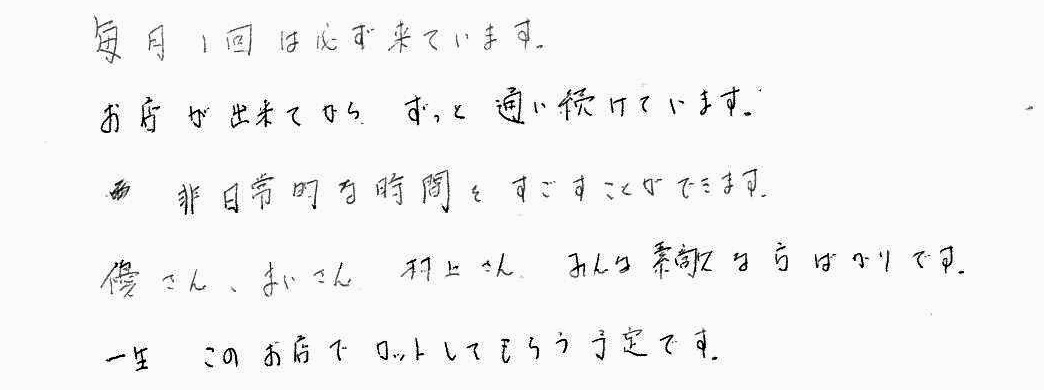 毎月1回は必ず来ています。
お店が出来てから ずっと通い続けています。
非日常的な時間をすごすことができます。
優さん、まいさん 村上さん みんな素敵な方ばかりです。
一生 このお店でカットしてもらう予定です。